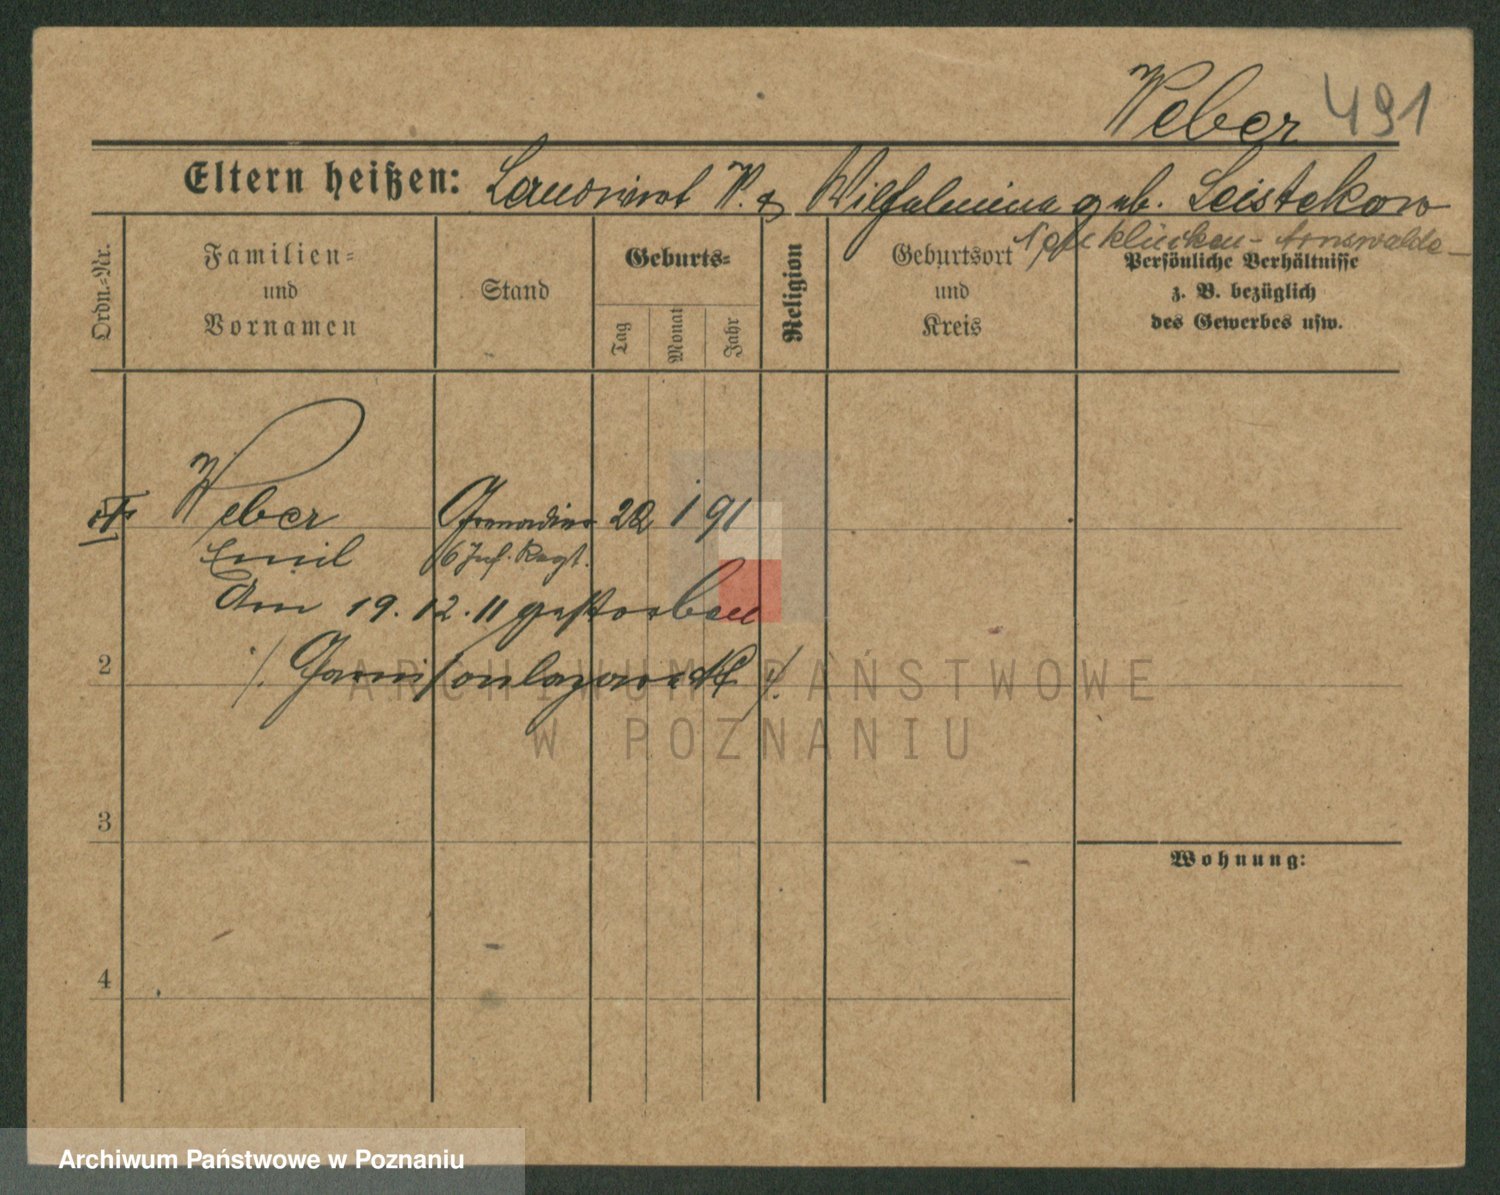 Weber 491
Eltern heißen: Landwirt W. & Wilhelmine geb. Leistekow
klücken - Arnswalde -
Ordn.-Nr.
Familien-
und
Vornamen
Stand
Geburts-
Tag
Monat
Jahr
Religion
Geburtsort
und
Kreis
Persönliche Verhältnisse
z. B. bezüglich
des Gewerbes usw.
Weber Grenadier 22 1 91
Emil 6 Inf. Regt.
Am 19.12.11 gestorben
2 /. Garnisonlazarett ./.
3
Wohnung:
4
ARCHIWUM PAŃSTWOWE
W POZNANIU
Archiwum Państwowe w Poznaniu